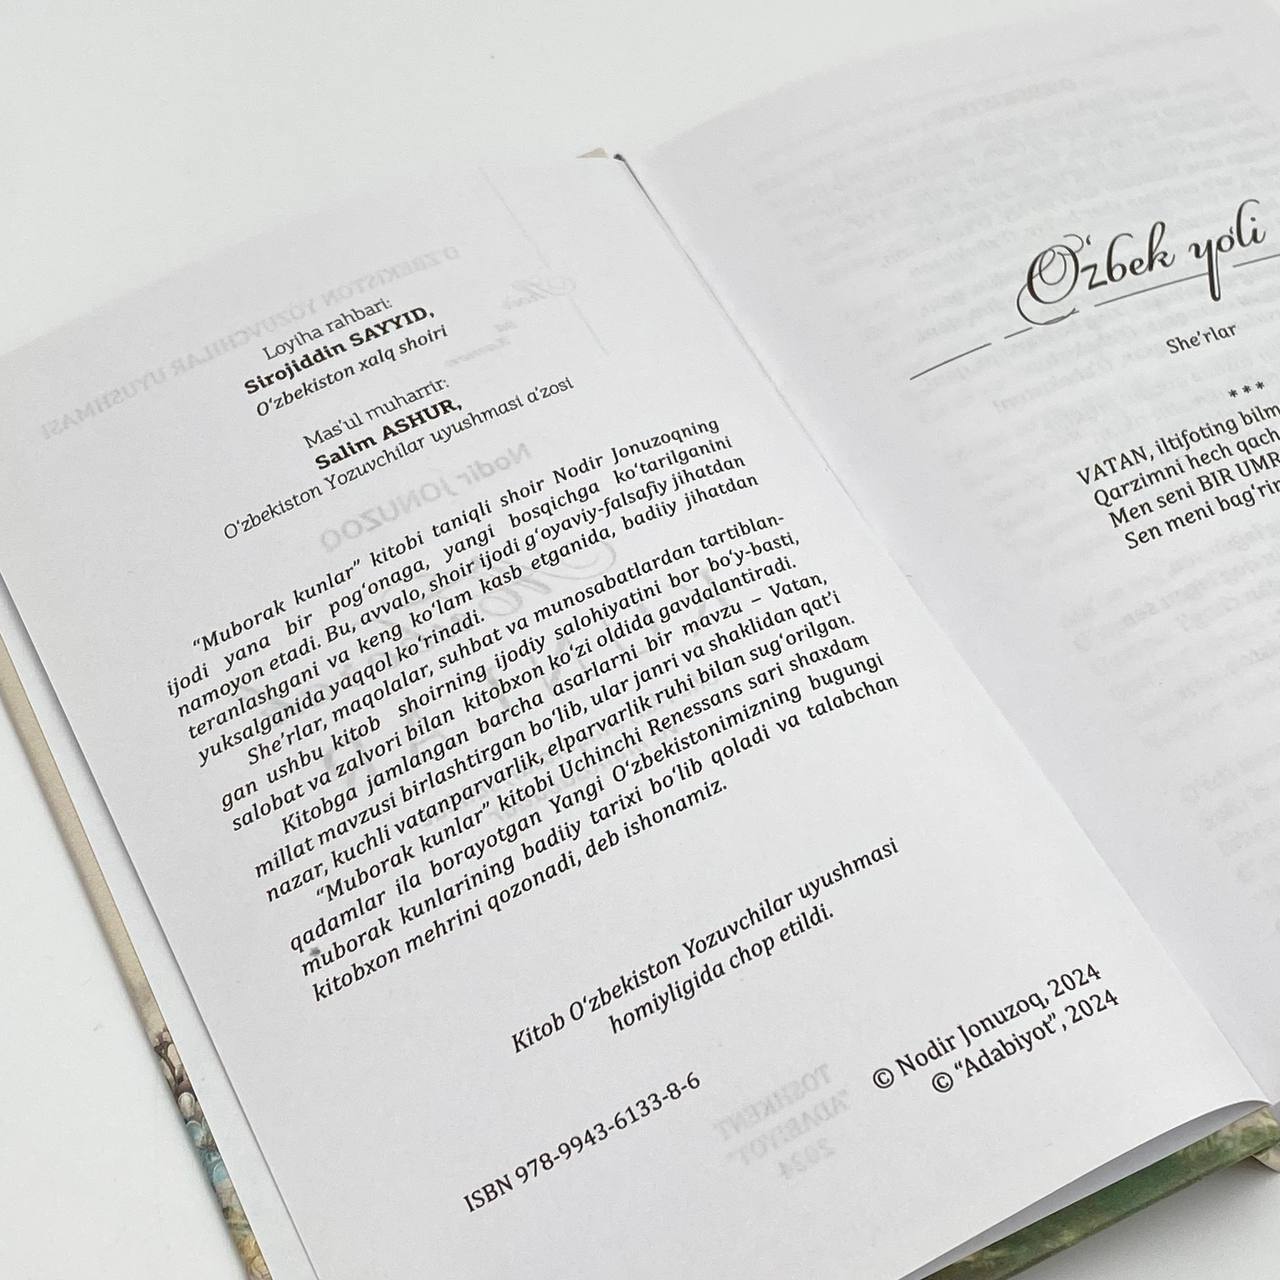 Loyiha rahbari:
Sirojiddin SAYYID,
O‘zbekiston xalq shoiri
Mas’ul muharrir:
Salim ASHUR,
O‘zbekiston Yozuvchilar uyushmasi a’zosi
“Muborak kunlar” kitobi taniqli shoir Nodir Jonuzoqning
ijodi yana bir pog‘onaga, yangi bosqichga ko‘tarilganini
namoyon etadi. Bu, avvalo, shoir ijodi g‘oyaviy-falsafiy jihatdan
teranlashgani va keng ko‘lam kasb etganida, badiiy jihatdan
yuksalganida yaqqol ko‘rinadi.
She’rlar, maqolalar, suhbat va munosabatlardan tartiblan-
gan ushbu kitob shoirning ijodiy salohiyatini bor bo‘y-basti,
salobat va zalvori bilan kitobxon ko‘zi oldida gavdalantiradi.
Kitobga jamlangan barcha asarlarni bir mavzu – Vatan,
millat mavzusi birlashtirgan bo‘lib, ular janri va shaklidan qat’i
nazar, kuchli vatanparvarlik, elparvarlik ruhi bilan sug‘orilgan.
“Muborak kunlar” kitobi Uchinchi Renessans sari shaxdam
qadamlar ila borayotgan Yangi O‘zbekistonimizning bugungi
muborak kunlarining badiiy tarixi bo‘lib qoladi va talabchan
kitobxon mehrini qozonadi, deb ishonamiz.
Kitob O‘zbekiston Yozuvchilar uyushmasi
homiyligida chop etildi.
ISBN 978-9943-6133-8-6
© Nodir Jonuzoq, 2024
© “Adabiyot”, 2024
O‘zbek yo‘li
She’rlar
* * *
VATAN, iltifoting
Qarzimni hech
Men seni BIR
Sen meni